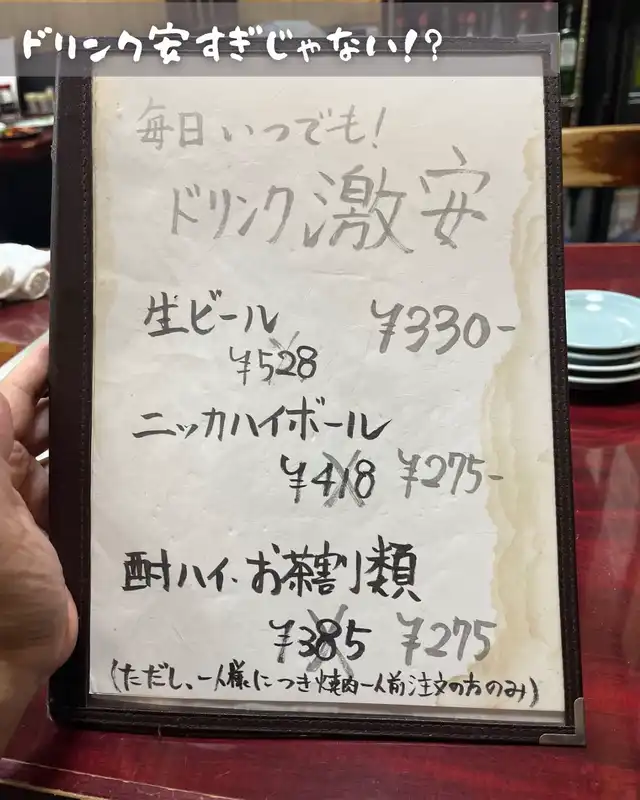 ドリンク安すぎじゃない!?
毎日いつでも!
ドリンク激安
生ビール ¥330-
¥528
ニッカハイボール
¥418 ¥275-
酎ハイ・お茶割り類
¥385 ¥275
(ただし、一人様につき焼肉一人前注文の方のみ)